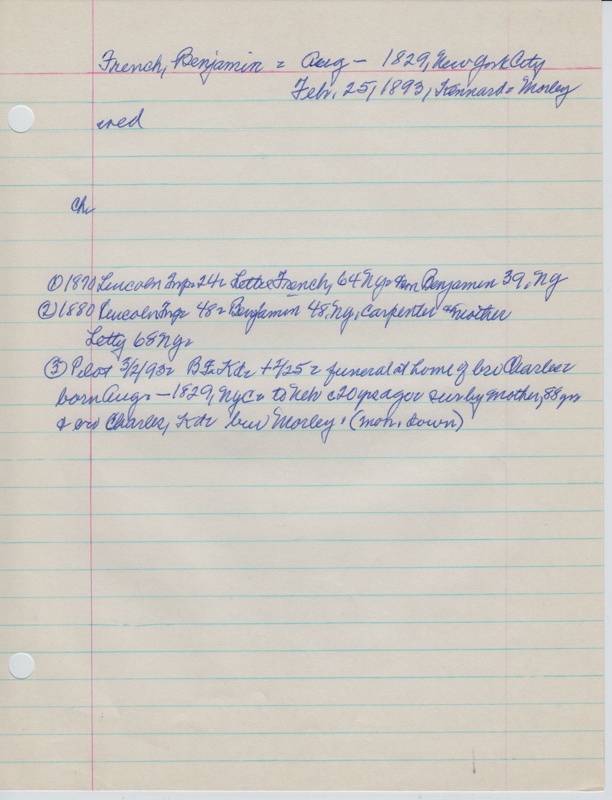 French, Benjamin = Aug - 1829, New York City
Feb. 25, 1893, Kennard = Morley
med
Ch.
① 1870 Lincoln Twp = 24 = Lette French, 64 Ny = Benjamin 39, Ny
② 1880 Lincoln Twp = 48 = Benjamin 48, Ny, Carpenter mother
Letty 68 Ny =
③ Pilot 3/2/93 = B.F. Kd = + 2/25 = funeral at home of bro Charles =
born Aug - 1829, Nyc = to Neb c20 yrs ago = sur by mother, 88 yrs
& bro Charles, Kd = bur Morley. (mon. down)